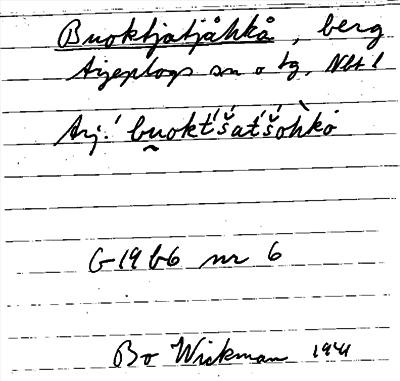 Buoktjatjåhkå, berg
Arjeplogs sn o tg, Nbt l
Arj. bu̯okt́šat́šohkò
G 19 b6 nr 6
Bo Wickman 1941